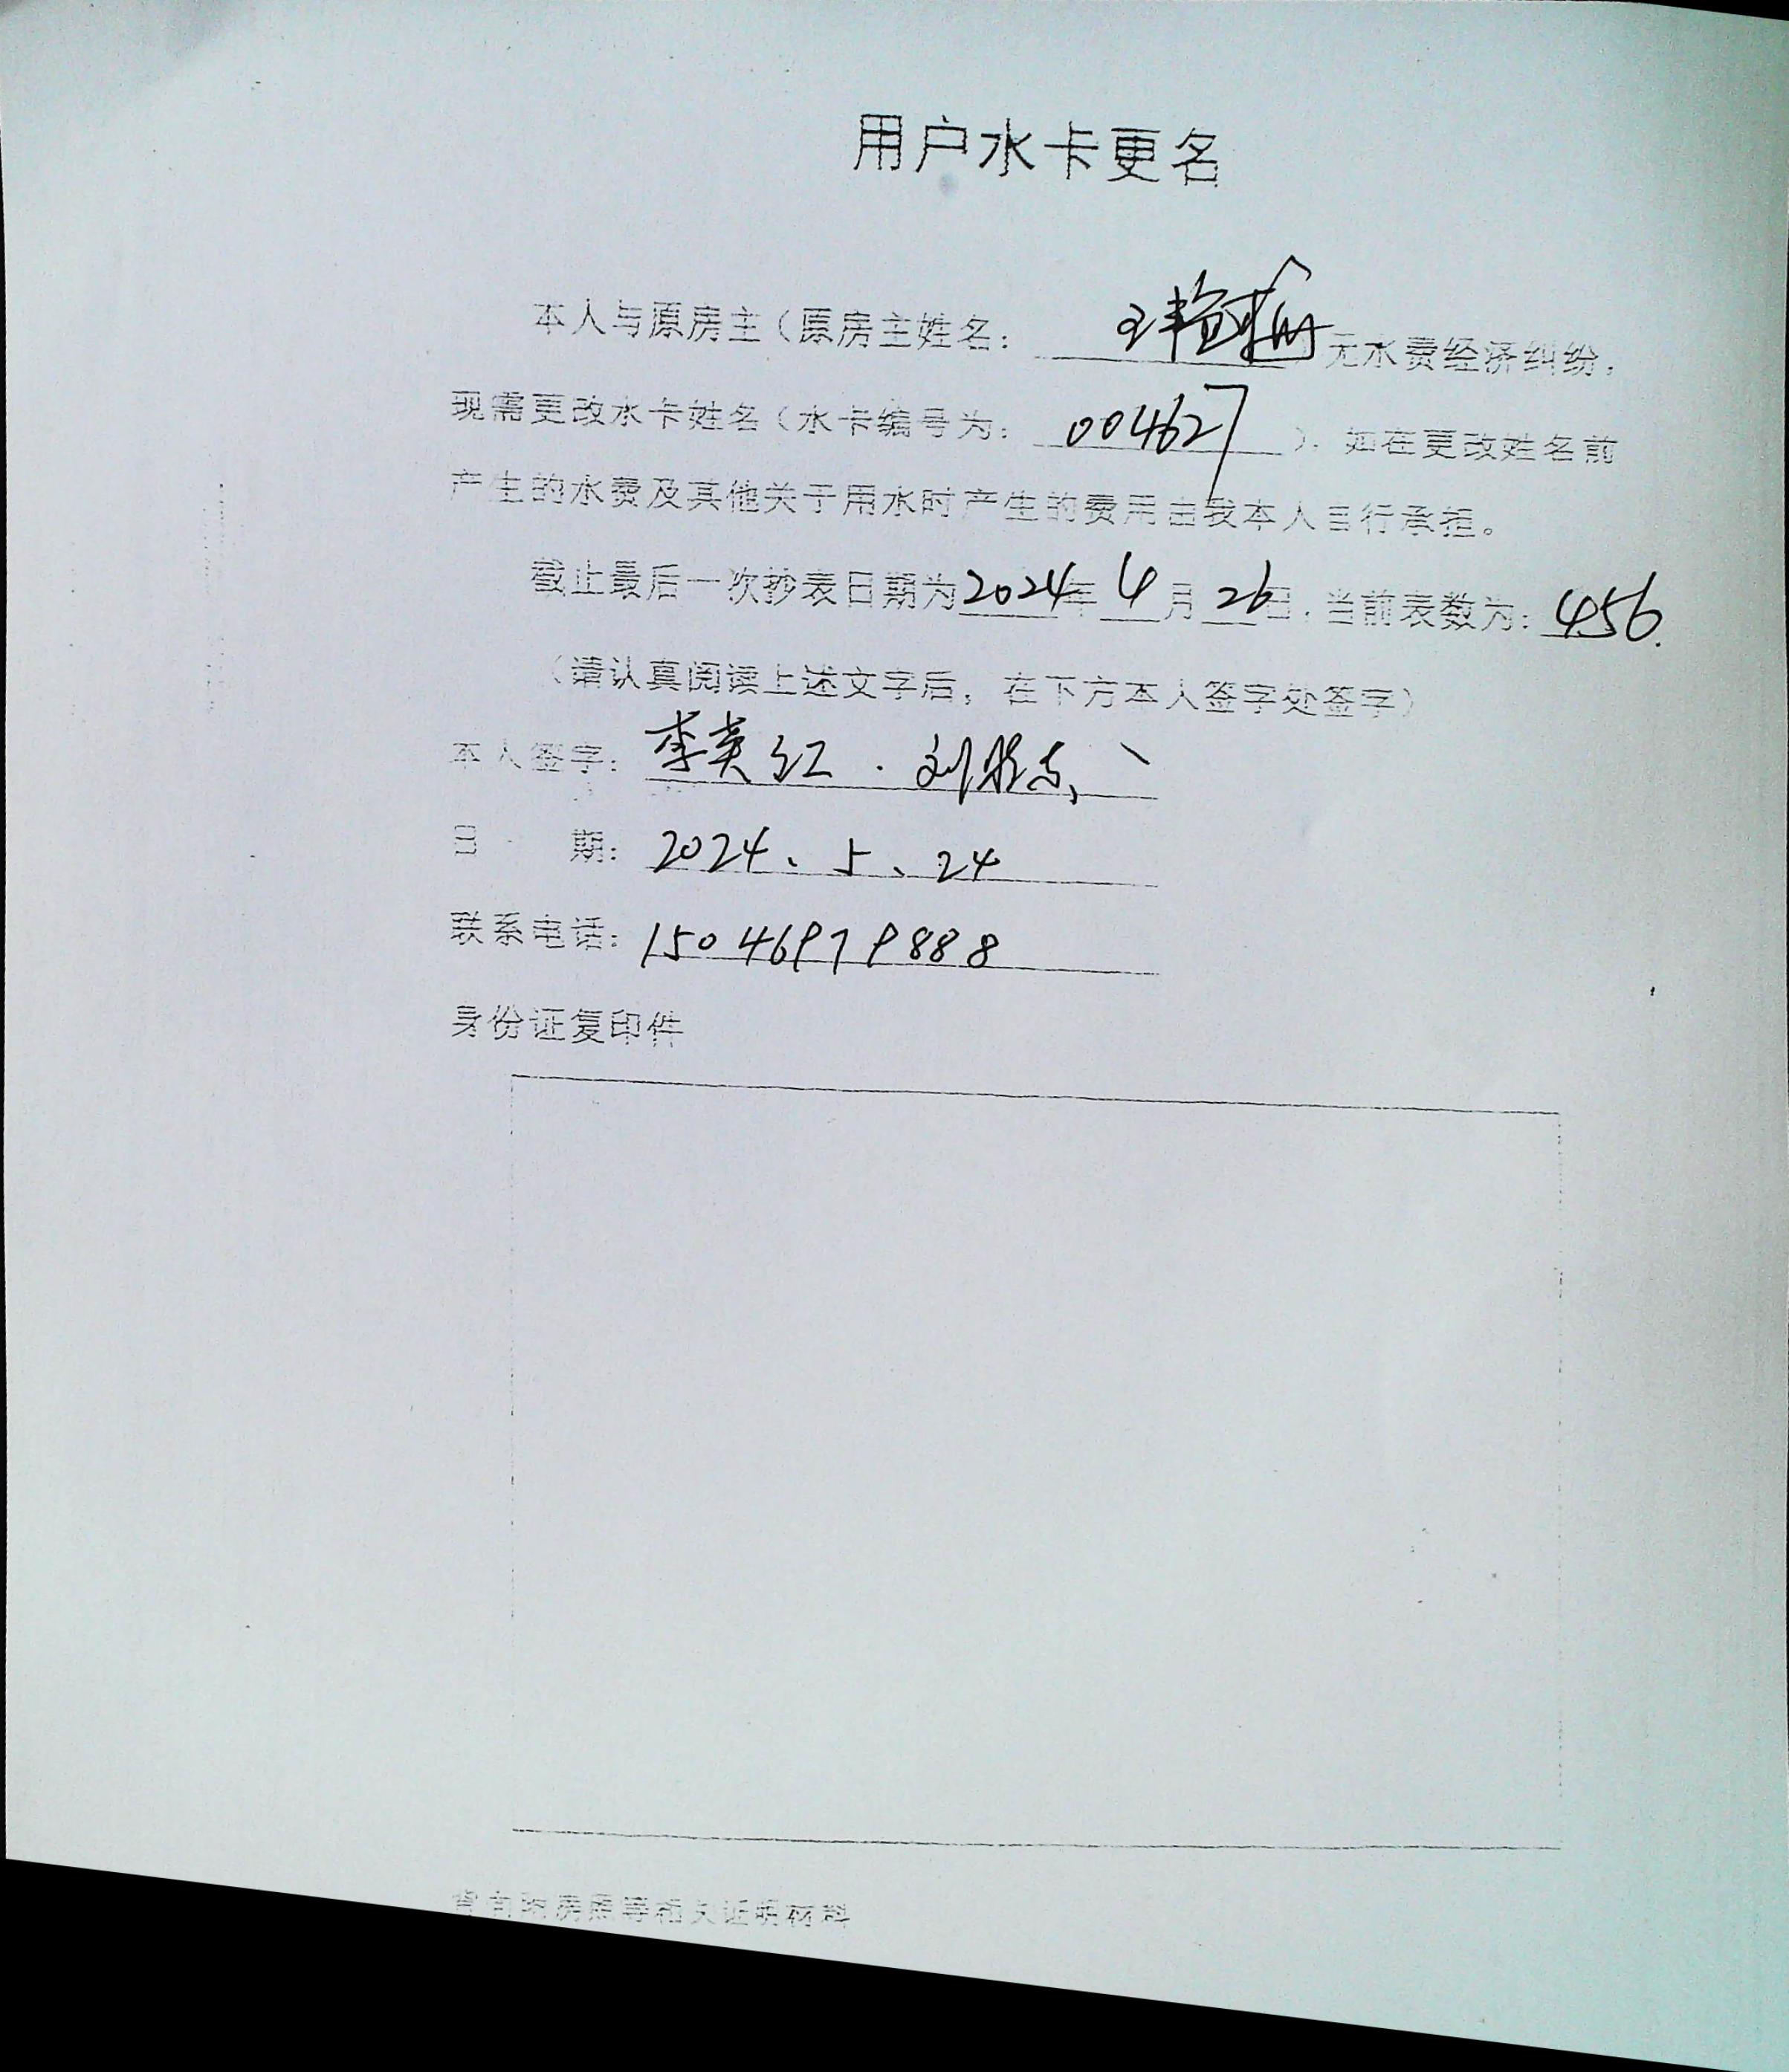 用户水卡更名
本人与原房主（原房主姓名： 无水费经济纠纷，
现需更改水卡姓名（水卡编号为：004627）. 如在更改姓名前
产生的水费及其他关于用水时产生的费用由我本人自行承担。
截止最后一次抄表日期为2024年4月26日，当前表数为：456.
（请认真阅读上述文字后，在下方本人签字处签字）
本人签字：李英红 . 刘
日 期：2024、5、24
联系电话：15046979888
身份证复印件
房照等相关证明材料